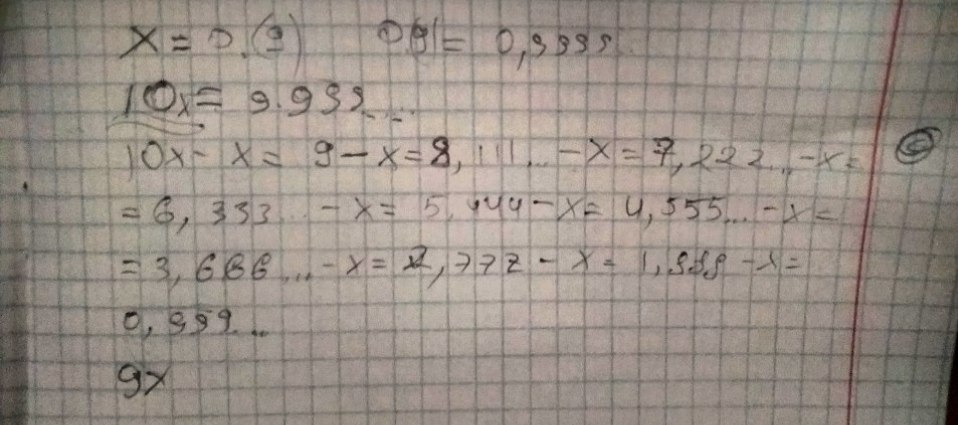 X = 0.(9) 0.(9) = 0,9999
10x = 9.999...
10x - x = 9 - x = 8,111... - x = 7,222... - x =
= 6,333... - x = 5,444 - x = 4,555... - x =
= 3,666... - x = 2,777 - x = 1,888 - x =
0,999...
9x